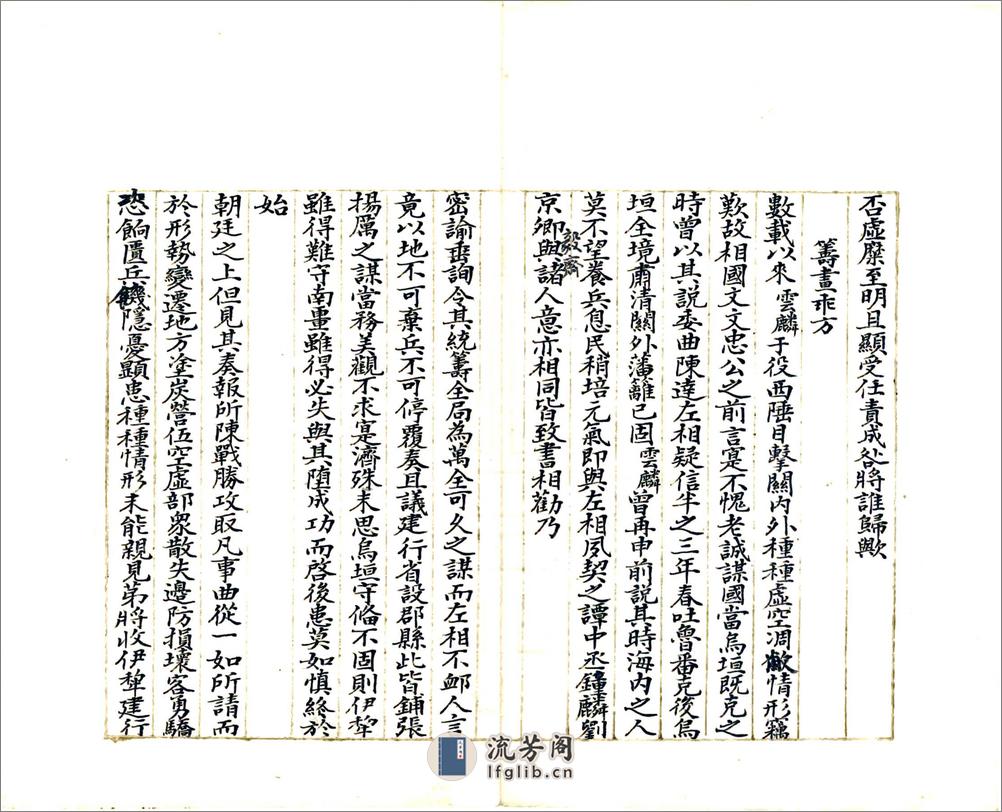 否虛糜至明且顯受任責成咎將誰歸歟
籌畫乖方
數載以來雲麟于役西陲目擊關內外種種虛空凋敝情形竊
歎故相國文文忠公之前言寔不愧老誠謀國當烏垣既克之
時曾以其說委曲陳達左相疑信半之三年春吐魯番克後烏
垣全境肅清關外藩籬已固雲麟曾再申前說其時海內之人
莫不望養兵息民稍培元氣即與左相夙契之譚中丞鍾麟劉
京卿毅齋與諸人意亦相同皆致書相勸乃
密諭垂詢令其統籌全局為萬全可久之謀而左相不卹人言
竟以地不可棄兵不可停覆奏且議建行省設郡縣此皆鋪張
揚厲之謀當務美觀不求寔濟殊未思烏垣守備不固則伊犂
雖得難守南畺雖得必失與其墮成功而啓後患莫如慎終於
始
朝廷之上但見其奏報所陳戰勝攻取凡事曲從一如所請而
於形勢變遷地方塗炭營伍空虛部衆散失邊防損壞客勇驕
恣餉匱兵饑隱憂顯患種種情形未能親見苐將收伊犂建行
流芳阁
lfglib.cn